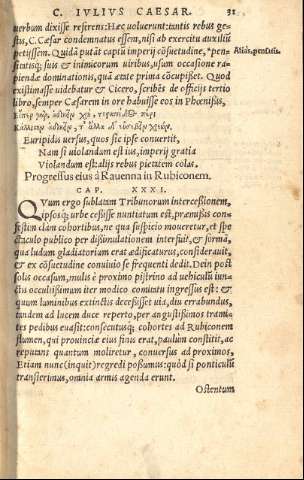 C. IVLIVS CAESAR. 31
uerbum dixisse referens: Hæc uoluerunt: tantis rebus ge-
stis, C. Cæsar condemnatus essem, nisi ab exercitu auxiliũ
petissem. Quidã putãt captũ imperij cõsuetudine, *pen-
sitatisq; suis & inimicorum uiribus, usum occasione ra-
piendæ dominationis, quã ætate prima cõcupisset. Quod
existimasse uidebatur & Cicero, scribẽs de officijs tertio
libro, semper Cæsarem in ore habuisse eos in Phœnissis,
Euripidis uersus, quos sic ipse conuertit,
Nam si uiolandum est ius, imperij gratia
Violandum est: alijs rebus pietatem colas.
Progressus eius à Rauenna in Rubiconem.
CAP. XXXI.
QVum ergo sublatam Tribunorum intercessionem,
ipsosq; urbe cessisse nuntiatum est, præmissis con-
festim clam cohortibus, ne qua suspicio moueretur, et spe
ctaculo publico per dissimulationem interfuit, & formã,
qua ludum gladiatorium erat ædificaturus, considerauit,
& ex cõsuetudine conuiuio se frequenti dedit. Dein post
solis occasum, mulis è proximo pistrino ad uehiculũ iun-
ctis occultissimum iter modico comitatu ingressus est: &
quum luminibus extinctis decessisset uia, diu errabundus,
tandem ad lucem duce reperto, per angustissimos trami-
tes pedibus euasit: consecutusq; cohortes ad Rubiconem
flumen, qui prouinciæ eius finis erat, paulũm constitit, ac
reputans quantum moliretur, conuersus ad proximos,
Etiam nunc (inquit) regredi possumus: quòd si ponticulũ
transierimus, omnia armis agenda erunt.
Ostentum